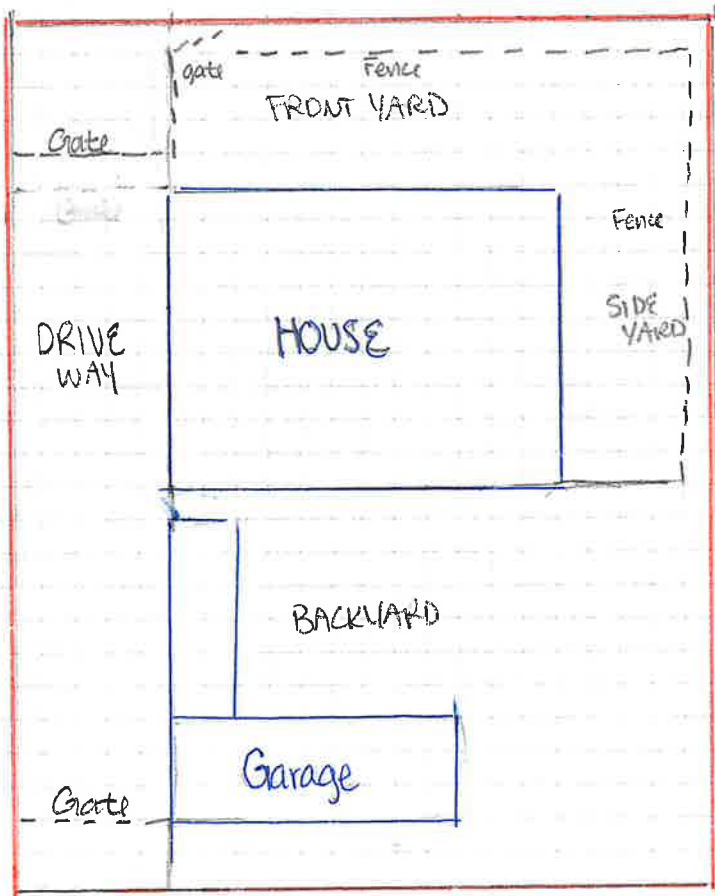 gate
Fence
FRONT YARD
Gate
Fence
SIDE
YARD
DRIVE
WAY
HOUSE
BACKYARD
Garage
Gate